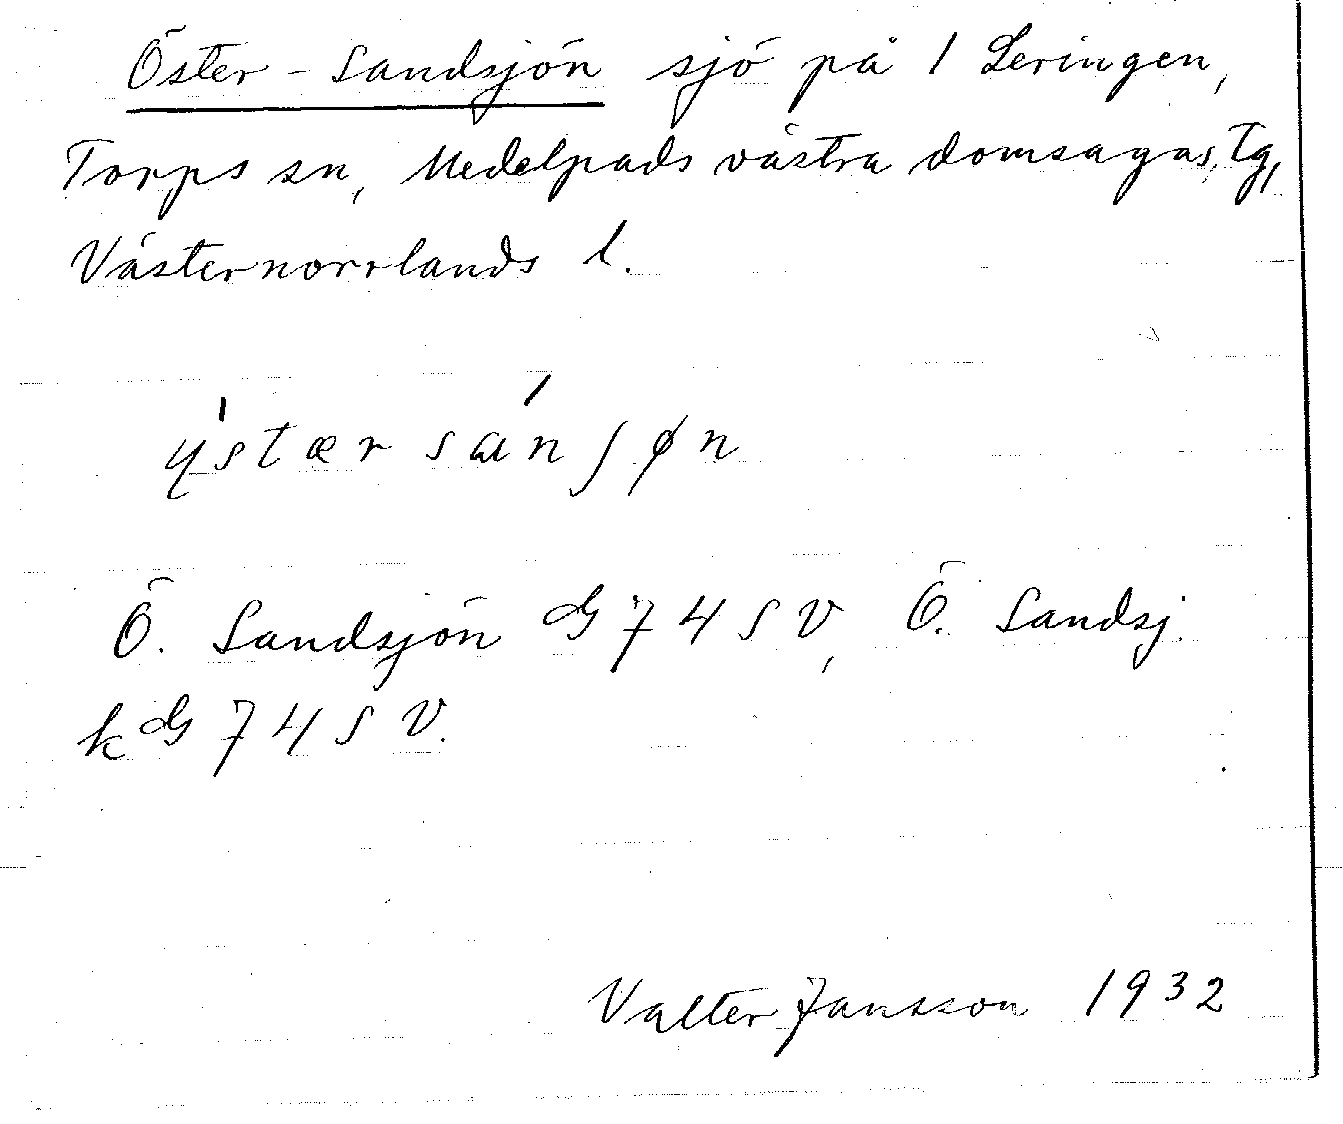 Öster-Sandsjön sjö på 1 Leringen,
Torps sn, Medelpads västra domsagas tg,
Västernorrlands l.
ýstær sánʃøn
Ö. Sandsjön G 74 SV, Ö. Sandsj.
k G 74 SV.
Valter Jansson 1932